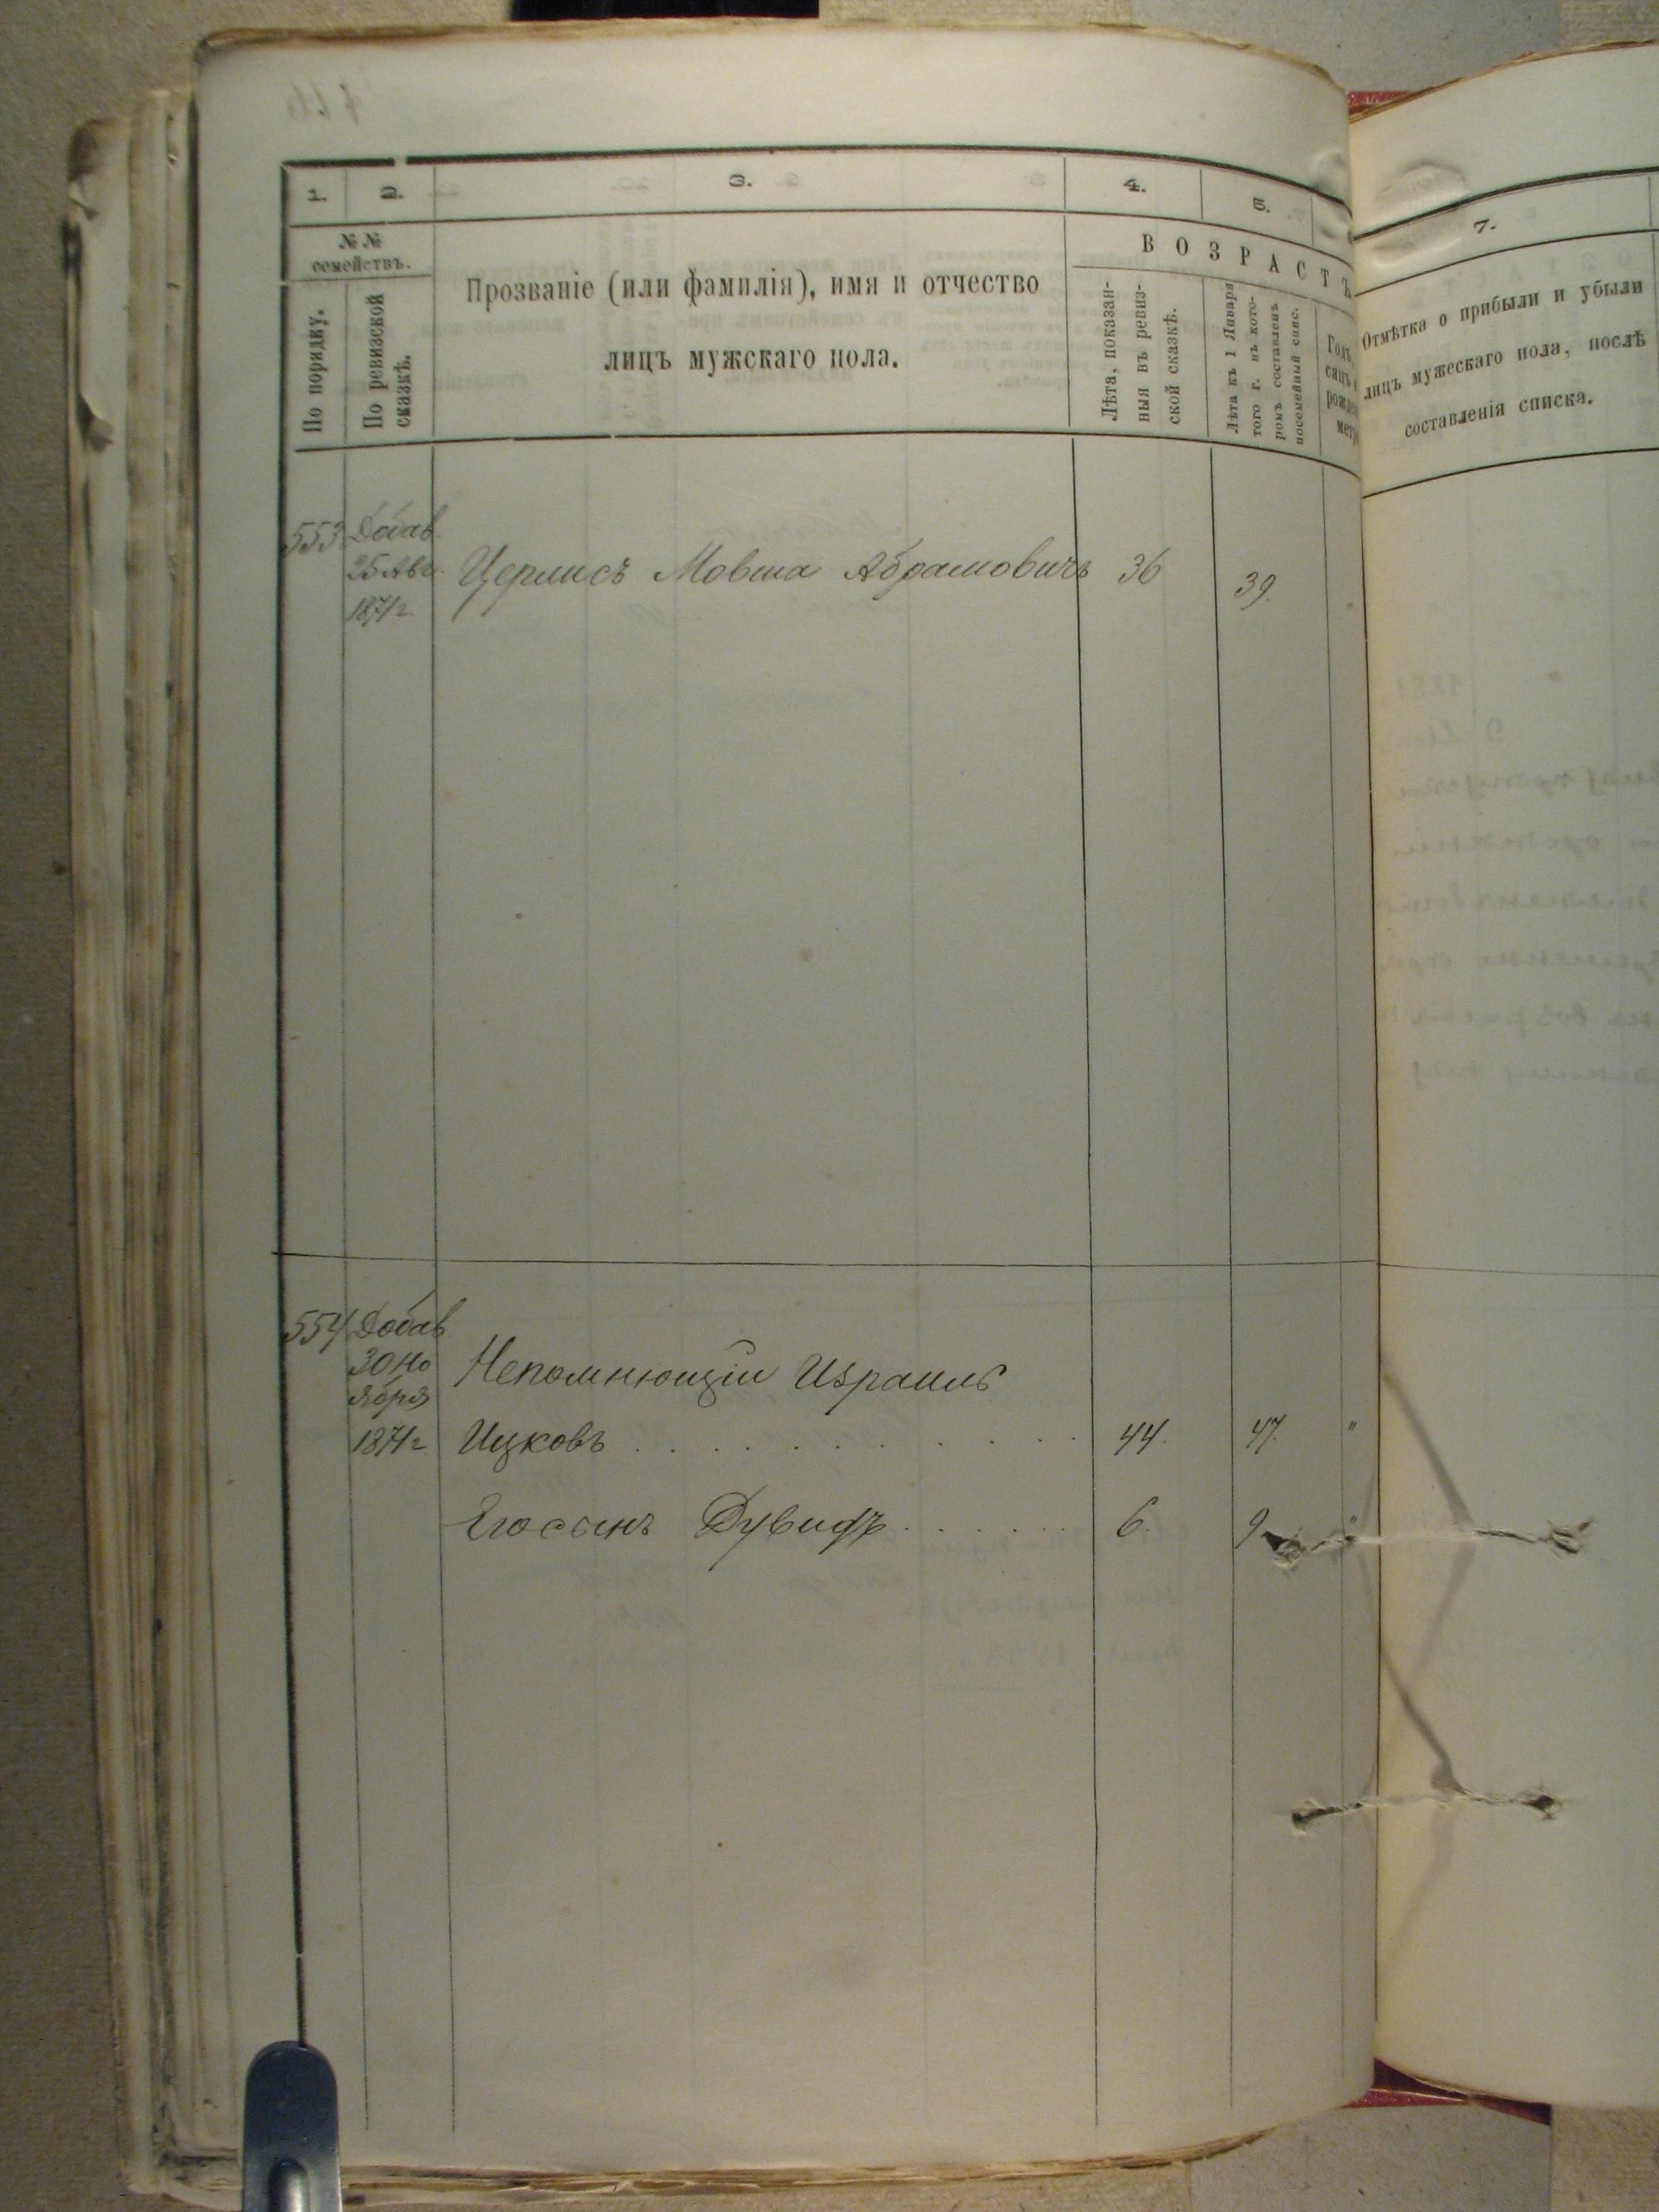 1.
2.
3.
4.
5.
7.
№ №
семействъ.
По порядку.
По ревизской
сказкѣ.
Прозваніе (или фамилія), имя и отчество
лицъ мужскаго пола.
ВОЗРАСТЪ
Лѣта, показан-
ныя въ ревиз-
ской сказкѣ.
Лѣта къ 1 Января
того г. въ кото-
ромъ составленъ
посемейный спис.
Отмѣтка о прибыли и убыли
лицъ мужескаго пола, послѣ
составленія списка.
553
Добав.
25 Авг.
1871 г.
Церлисъ Мовша Абрамовичъ 36 39.
554
Добав.
30 Но
ября
1871 г.
Непомнющiи Израиль
Ицковъ . . . . . . . . . . . 44. 47. "
Его сынъ Дувидъ . . . . . . . 6. 9 "